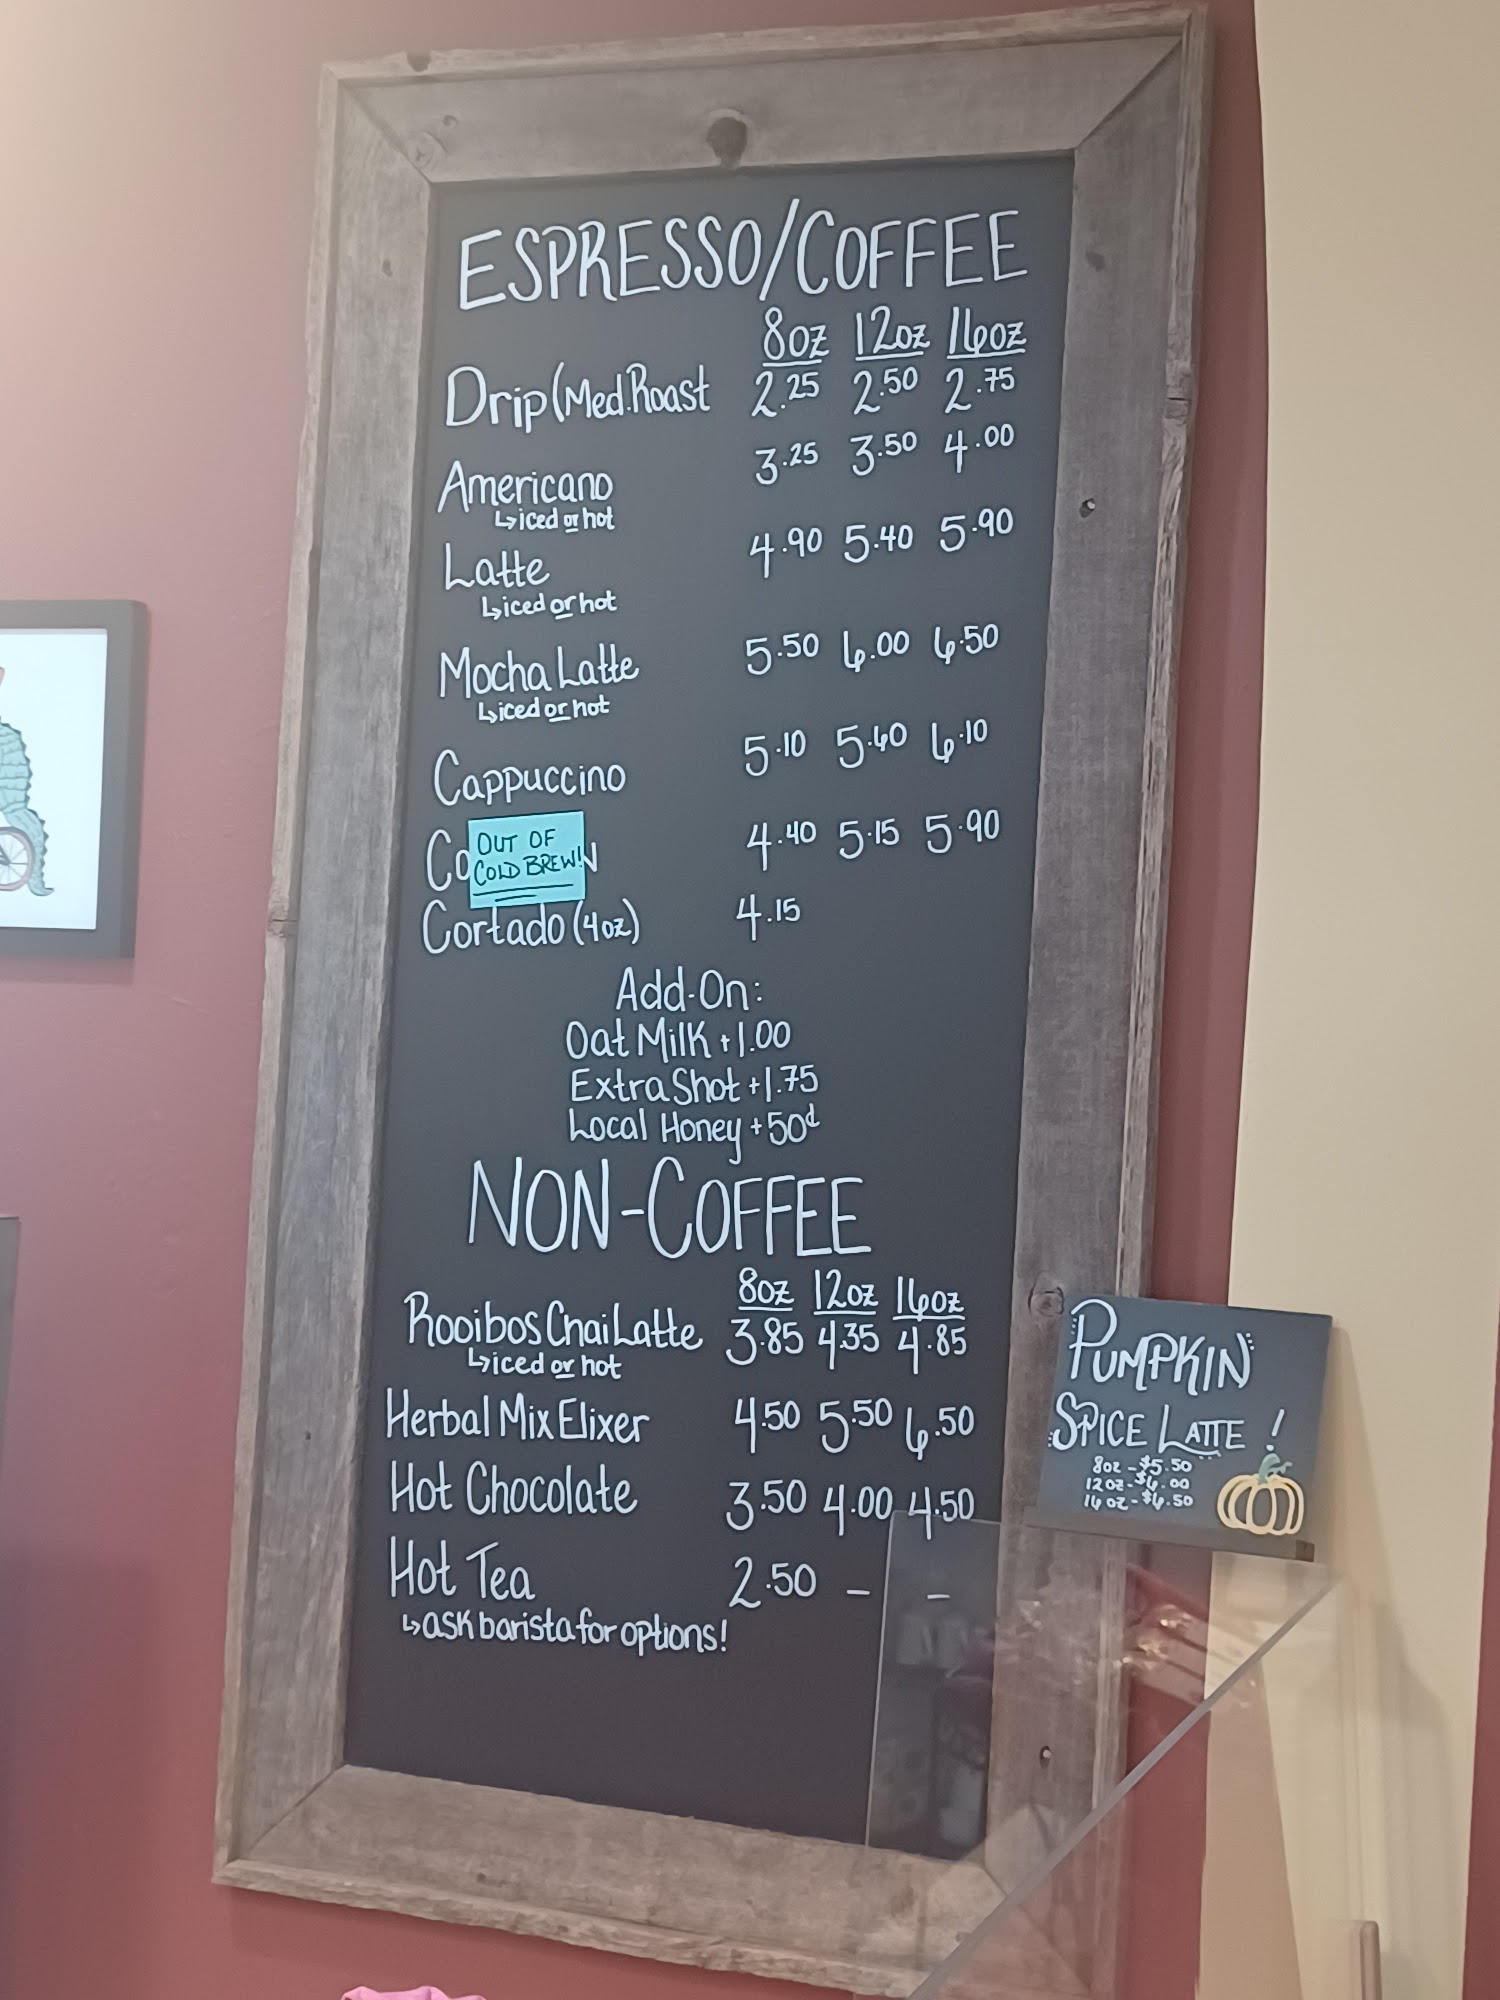 ESPRESSO/COFFEE
8oz 12oz 16oz
Drip (Med.Roast 2.25 2.50 2.75
Americano 3.25 3.50 4.00
↳iced or hot
Latte 4.90 5.40 5.90
↳iced or hot
Mocha Latte 5.50 6.00 6.50
↳iced or hot
Cappuccino 5.10 5.60 6.10
OUT OF
COLD BREW!
4.40 5.15 5.90
Cortado (4oz) 4.15
Add-On:
Oat Milk +1.00
Extra Shot +1.75
Local Honey +50¢
NON-COFFEE
8oz 12oz 16oz
Rooibos Chai Latte 3.85 4.35 4.85
↳iced or hot
Herbal Mix Elixer 4.50 5.50 6.50
Hot Chocolate 3.50 4.00 4.50
Hot Tea 2.50 – –
↳ask barista for options!
PUMPKIN
SPICE LATTE!
8oz - $5.50
12oz - $6.00
16oz - $6.50